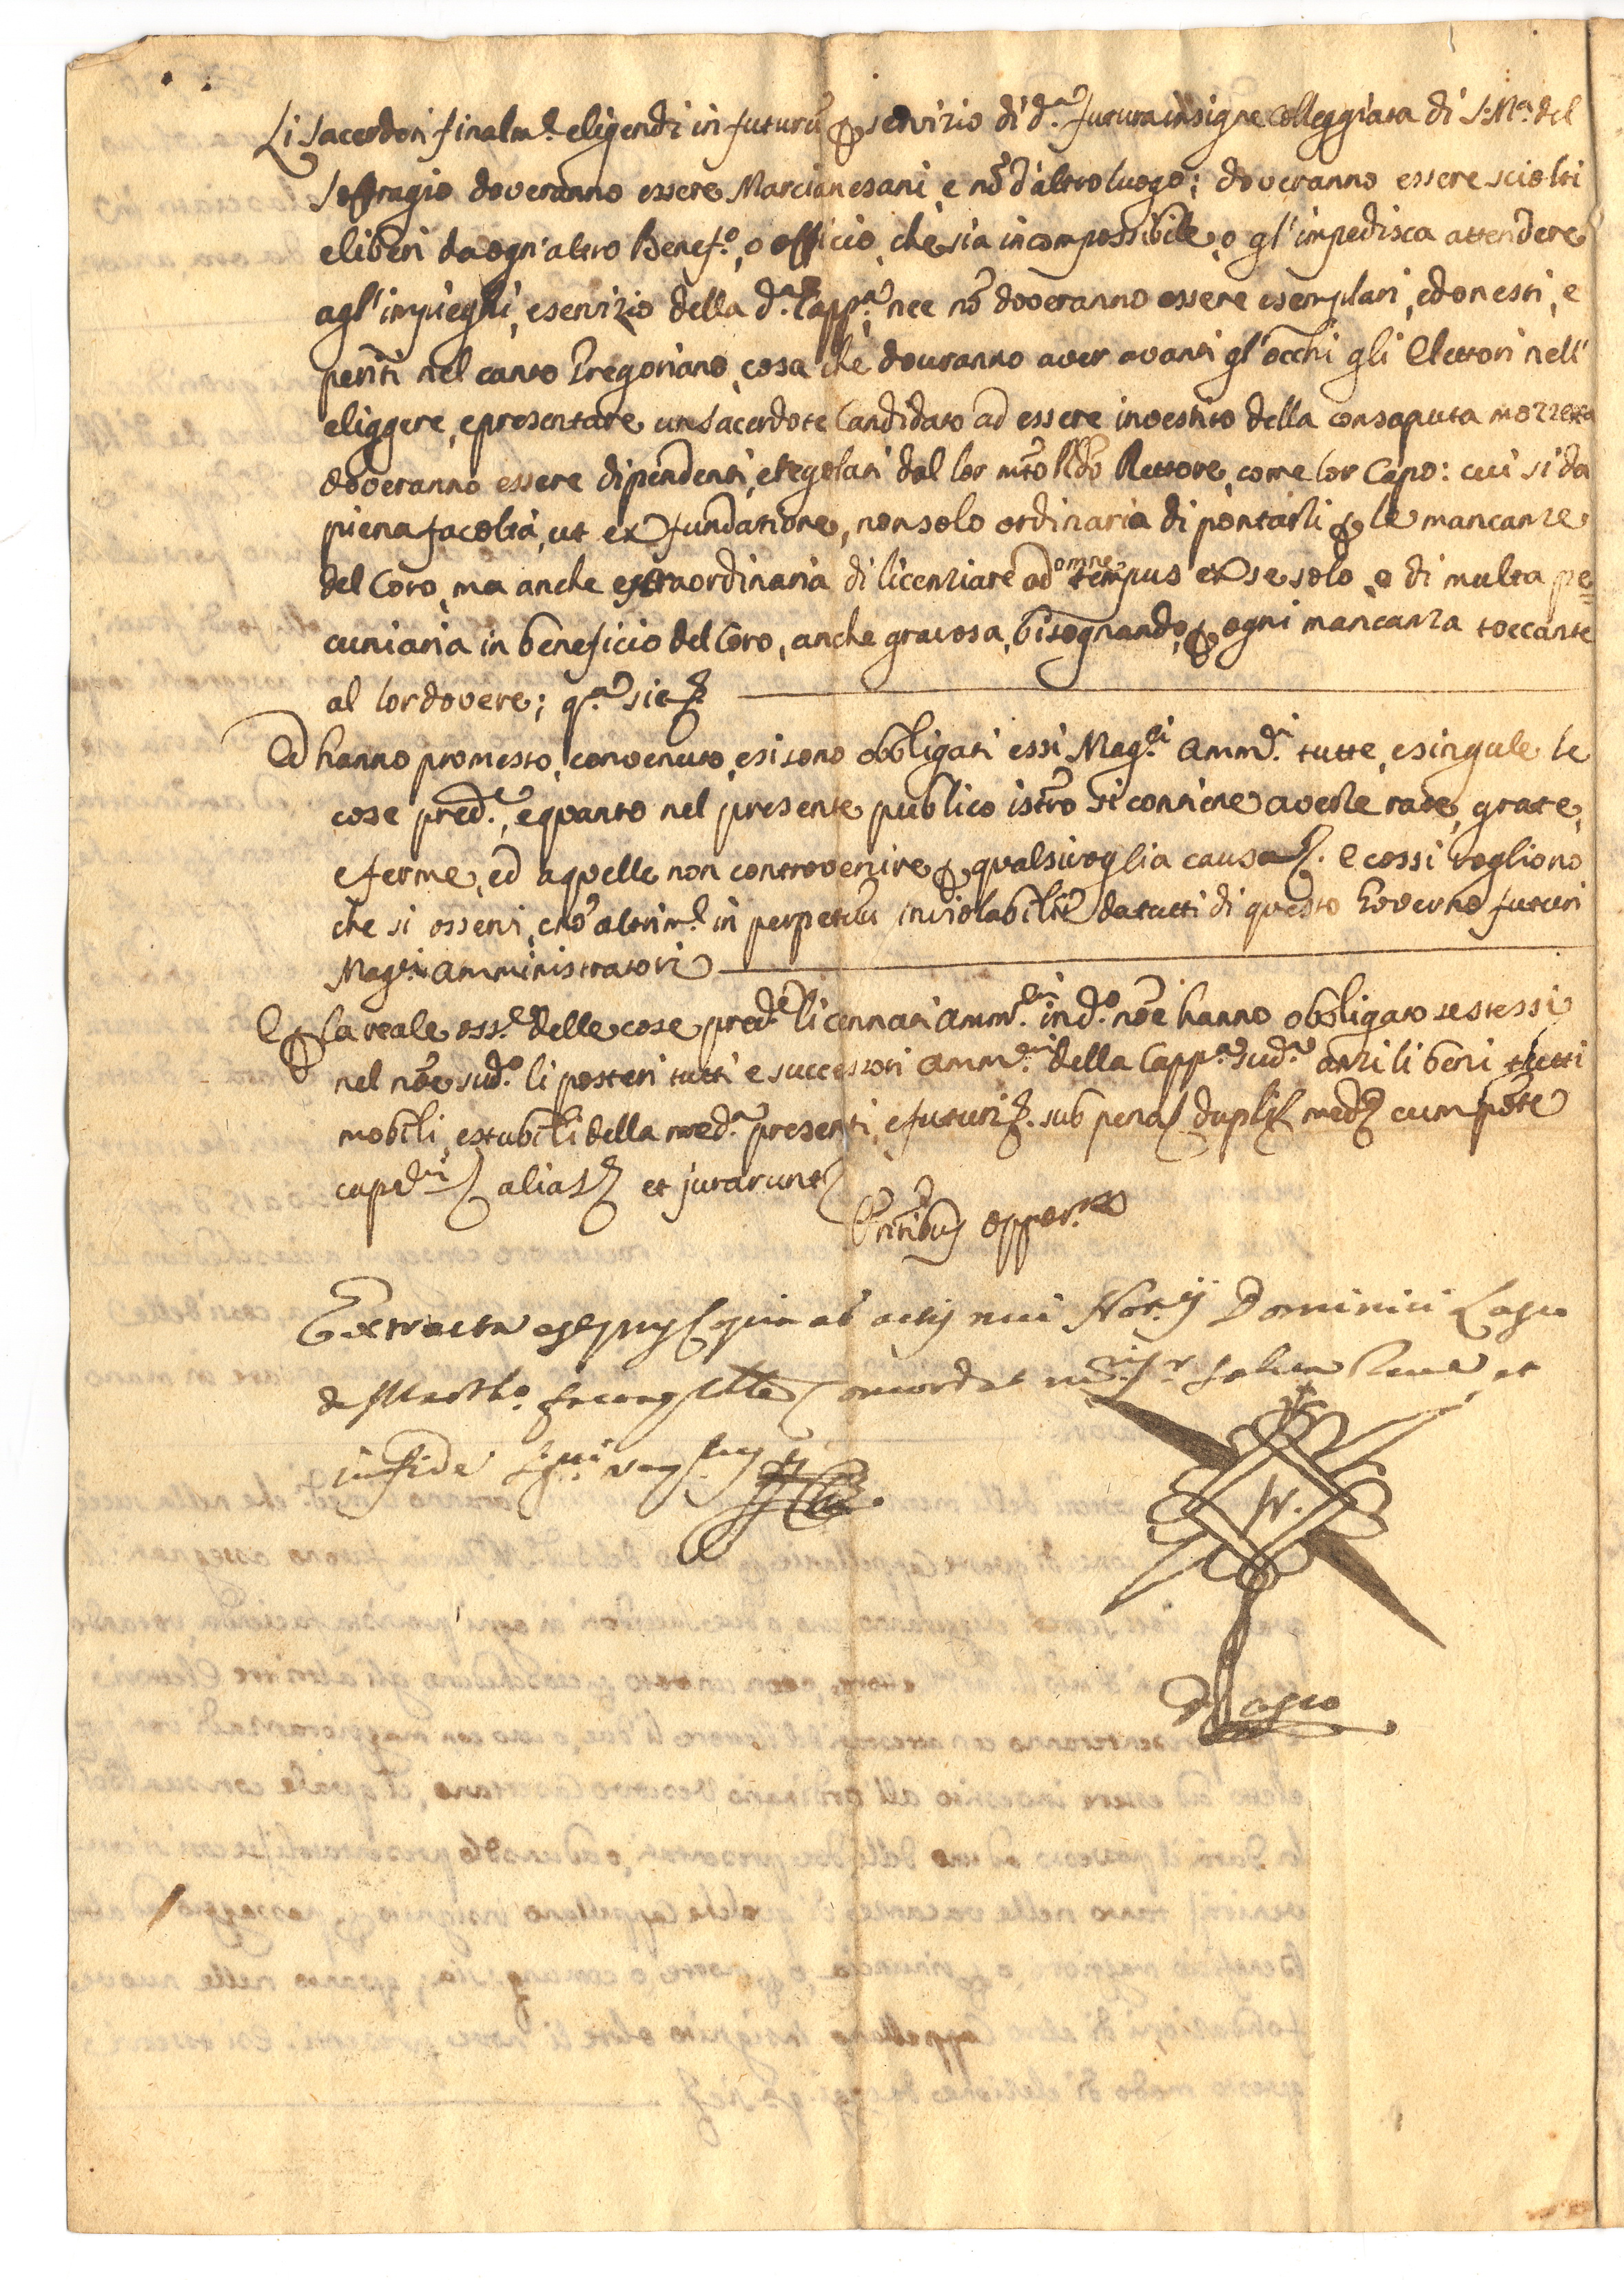 Li Sacerdoti finalm.e eligendi in futurũ p servizio di d.a futura insigne Colleggiata di S. M.a del
Soffragio doveranno essere Marcianesani, e nõ d'altro luogo; doveranno essere sciolti
e liberi da ogn'altro Benef.o, o officio, che sia incompossibile, o gl'impedisca attendere
agl'impieghi, e servizio della d.a Capp.a, nec nõ doveranno essere esemplari, ed onesti, e
periti nel canto Gregoriano, cosa che dovranno aver avanti gl'occhi gli Elettori nell'
eliggere, e presentare un Sacerdote Candidato ad essere investito della consaputa mozzetta
doveranno essere dipendenti, e regolati dal lor mõto Rdo Rettore, come lor Capo: cui si da
piena facoltà, ut ex fundatione, non solo ordinaria di pontarli p le mancanze
del Coro, ma anche estraordinaria di licenziare ad omne tempus ex se solo, o di multa pe=
cuniaria in beneficio del Coro, anche gravosa, bisognando, p ogni mancanza toccante
al lor dovere; q.a sic
Ed hanno promesso, convenuto, e si sono obbligati essi Mag.ci Amm.ri tutte, e singule le
cose pred.e, e quanto nel presente publico istro si contiene averle rate, grate,
e ferme, ed a quelle non controvenire p qualsivoglia causa. E cossì vogliono
che si osservi, e nõ altrim.e in perpetuũ inviolabilr̃ da tutti di questo Governo futuri
Mag.ci Amministratori
E p la reale oss.a delle cose pred.e li cennati Amm.ri in d.o nõe hanno obbligato se stessi
nel nõe sud.o li posteri tutti e successori Amm.ri della Capp.a sud.a anzi li beni tutti
mobili, e stabili della med.a presenti, e futuri. sub pena dupli med cum põte
capdi alias et jurarunt
Pñtibus oppor.nis
Extracta est pns Copia ab actis mei Not.ij Dominici Lasco
de Mart.o facta collatione Concordat m.ri sr salva semp et
in fide
N.
D. Lasco